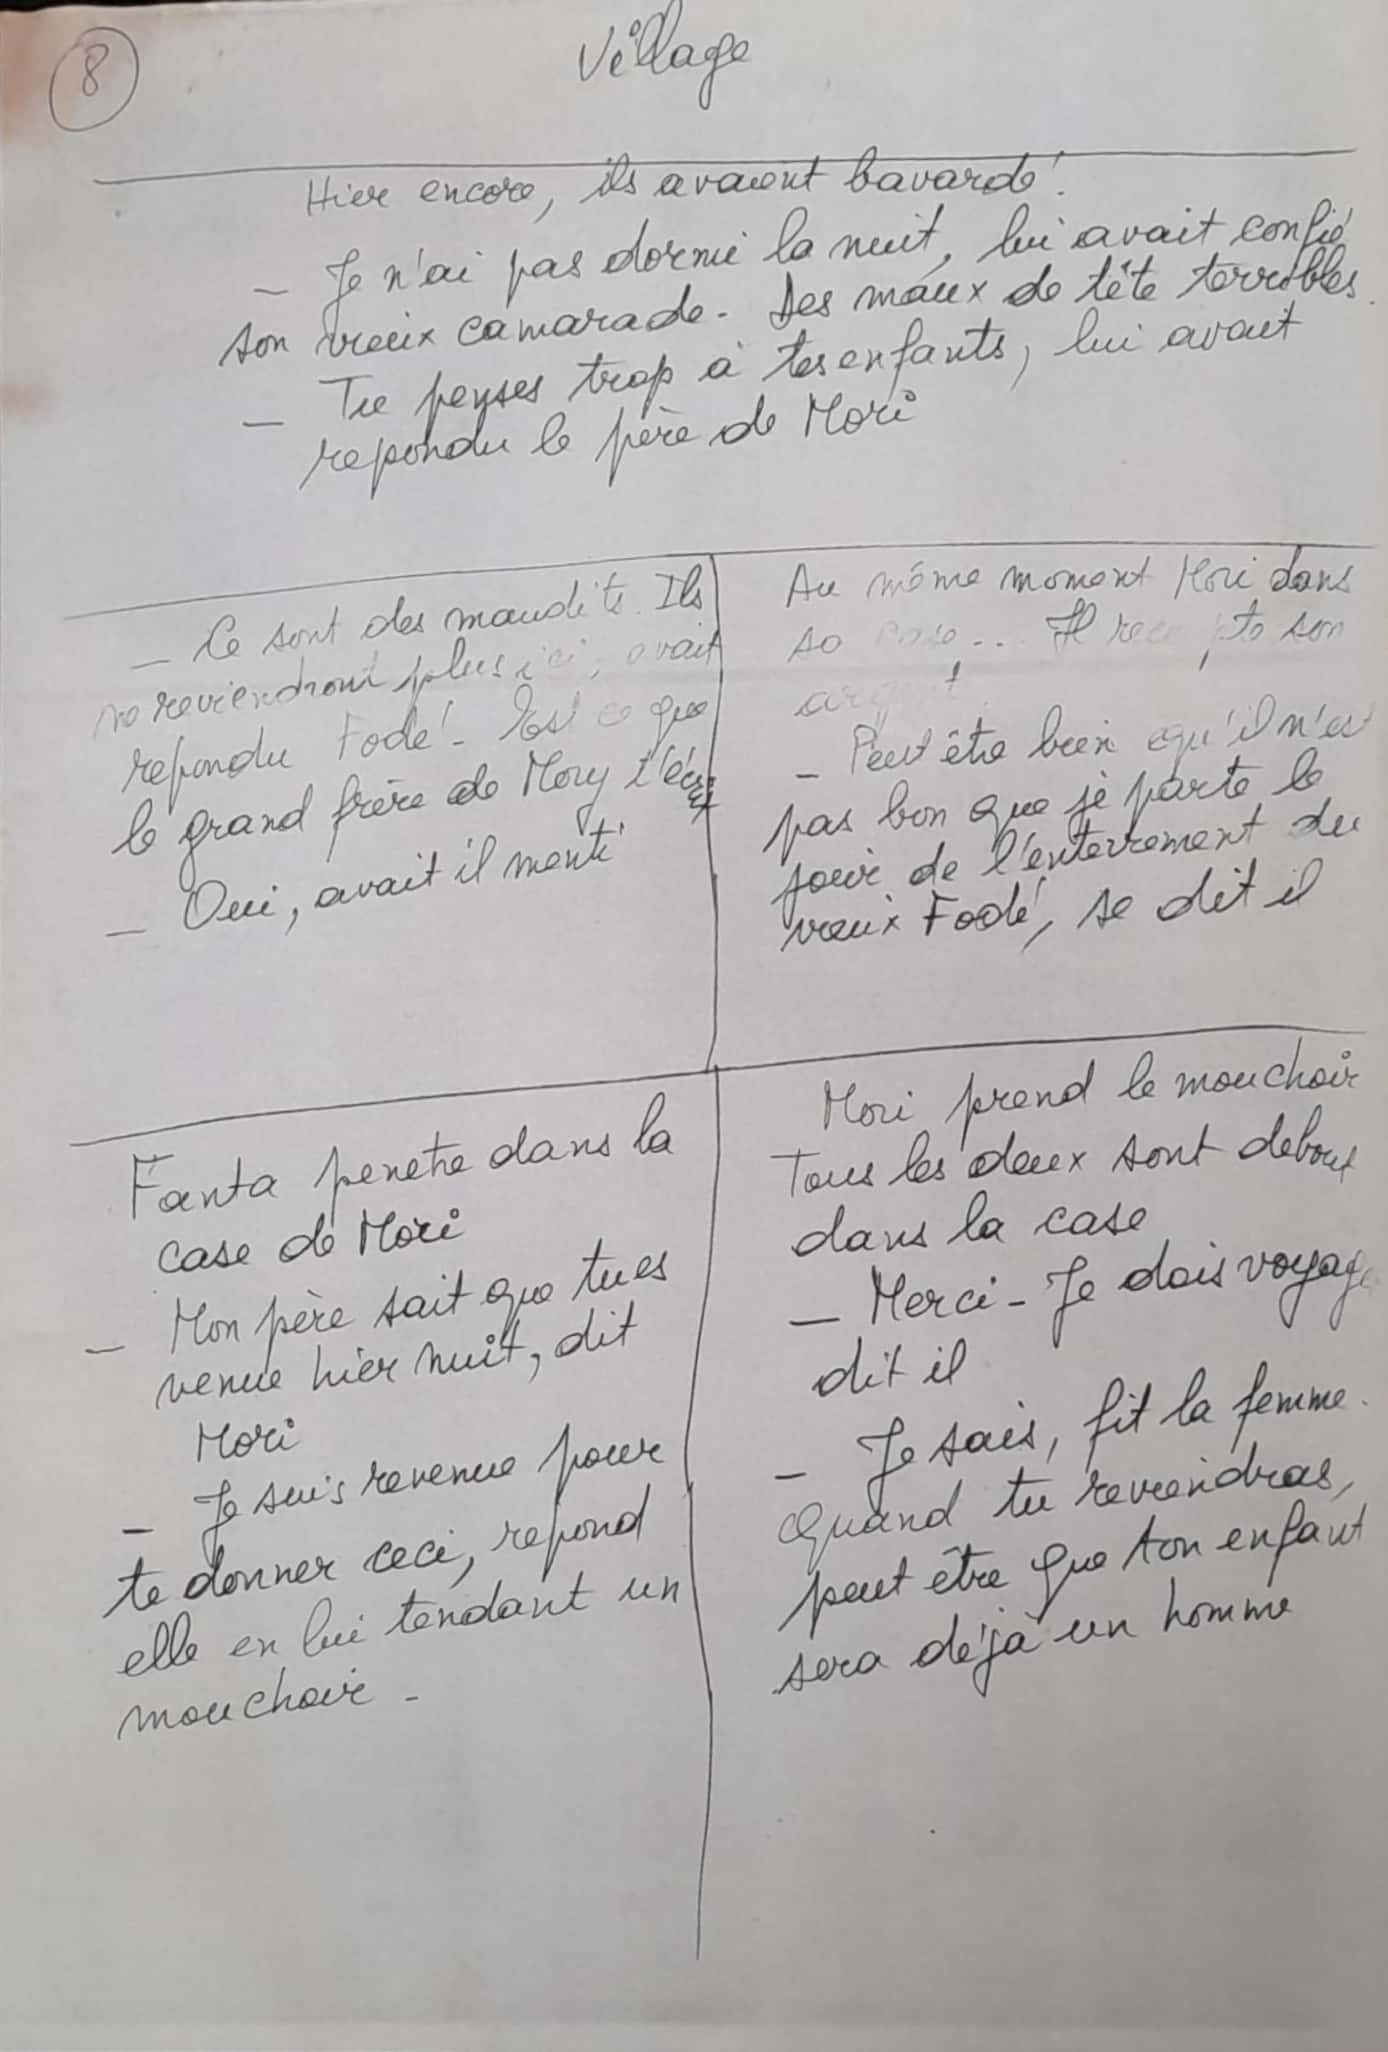 8
Village
Hier encore, ils avaient bavardé.
– Je n'ai pas dormi la nuit, lui avait confié
son vieux camarade. Des maux de tête terribles.
– Tu penses trop à tes enfants, lui avait
repondu le père de Mori
– Ce sont des maudits. Ils
ne reviendront plus ici, avait
repondu Fodé. Est ce que
le grand frère de Mory t'écrit
– Oui, avait il menti
Au même moment Mori dans
sa case... Il recompte son
argent.
– Peut être bien qu'il n'est
pas bon que je parte le
jour de l'enterrement du
vieux Fodé, se dit il
Fanta penetre dans la
case de Mori
– Mon père sait que tu es
venue hier nuit, dit
Mori
– Je suis revenue pour
te donner ceci, repond
elle en lui tendant un
mouchoir.
Mori prend le mouchoir
Tous les deux sont debout
dans la case
– Merci. Je dois voyager
dit il
– Je sais, fit la femme.
Quand tu reviendras,
peut être que ton enfant
sera déjà un homme